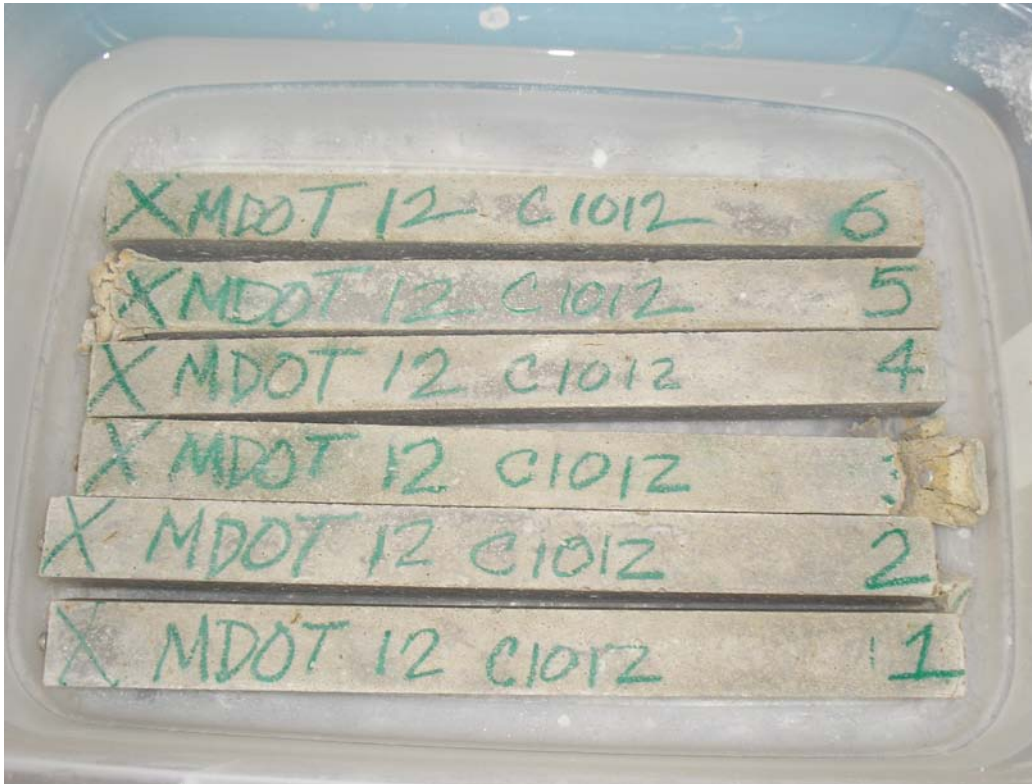 X MDOT 12 C1012 6
X MDOT 12 C1012 5
X MDOT 12 C1012 4
X MDOT 12 C1012
X MDOT 12 C1012 2
X MDOT 12 C1012 1